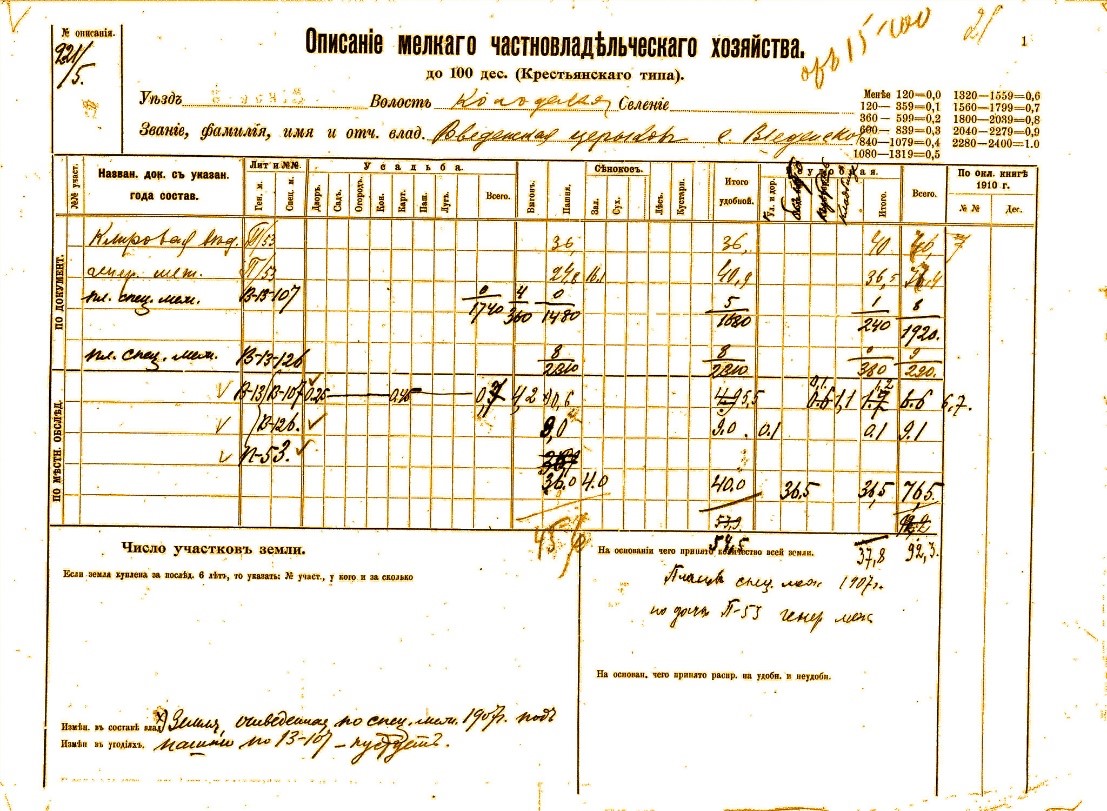 № описанія.
221/5.
Описаніе мелкаго частновладѣльческаго хозяйства.
до 100 дес. (Крестьянскаго типа).
21
1
Уѣздъ Волость Селеніе
Званіе, фамилія, имя и отч. влад. Введенская с. Введенско
Менѣе 120=0,0 1320—1559=0,6
120— 359=0,1 1560—1799=0,7
360 — 599=0,2 1800—2039=0,8
600— 839=0,3 2040—2279=0,9
840—1079=0,4 2280—2400=1.0
1080—1319=0,5
№№ участ.
Назван. док. съ указан. года состав.
Лит и №№.
Ген. м.
Спец. м.
Усадьба.
Дворъ.
Садъ.
Огородъ.
Кон.
Карт.
Пап.
Лугъ.
Всего.
Выгонъ.
Пашня.
Сѣнокосъ.
Зал.
Сух.
Лѣсъ.
Кустарн.
Итого удобной.
Ул. и дор.
Итого.
Всего.
По окл. книгѣ 1910 г.
№ №
Дес.
ПО ДОКУМЕНТ.
Клировая вѣд. П/53 36, 36, 40 7
генер. меж. П/53 24,8 16.1 40,9 36,5
пл. спец. меж. В-13-107 0/1740 4/360 0/1480 5/1680 1/240 8/1920.
пл. спец. меж. В-13-126 8/2310 8/2310 0/380 9/290.
ПО МѢСТН. ОБСЛѢД.
В-13/В-107 0.25 0.45 4,2 0,6 4.9 5,5 0.1 1,1 1.2 6.6 6,7.
В-126. 9,0 9.0 0.1 0.1 9.1
П-53.
36.0 4.0 40.0 36.5 36,5 76,5
53,9
54,5 37,8 92,3.
Число участковъ земли.
Если земля куплена за послѣд. 6 лѣтъ, то указать: № участ., у кого и за сколько
На основаніи чего принято количество всей земли.
спец. меж 1907г.
по дачѣ П-53 генер меж
На основан. чего принято распр. на удобн. и неудобн.
Измѣн. въ составѣ влад. Земля, отведенная по спец. меж. 1907г. подъ
Измѣн въ угодіяхъ. пашню по 13-107 — пустуетъ.